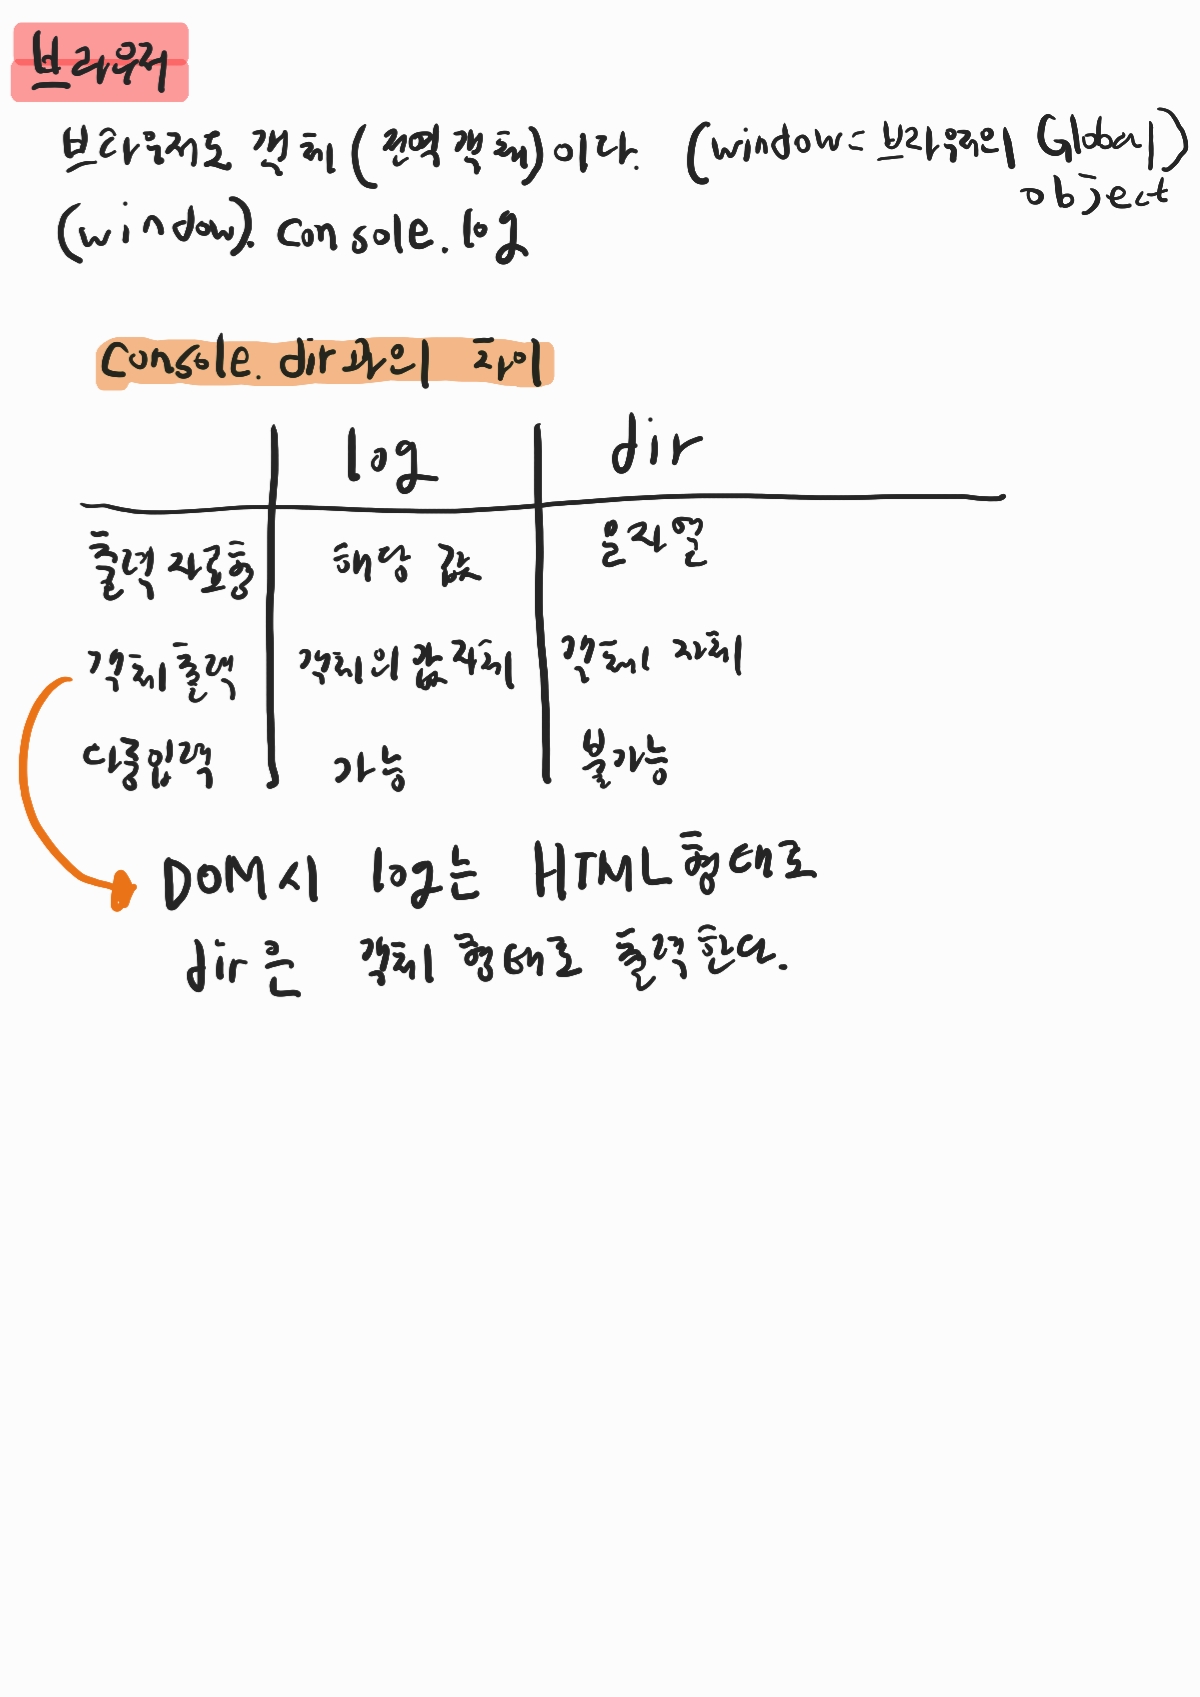 브라우저
브라우저도 객체(전역객체)이다. (window = 브라우저의 Global
object)
(window). console.log
console.dir과의 차이
log dir
출력 자료형 해당 값 문자열
객체 출력 객체의 값 자체 객체 자체
다중입력 가능 불가능
DOM시 log는 HTML 형태로
dir은 객체 형태로 출력한다.